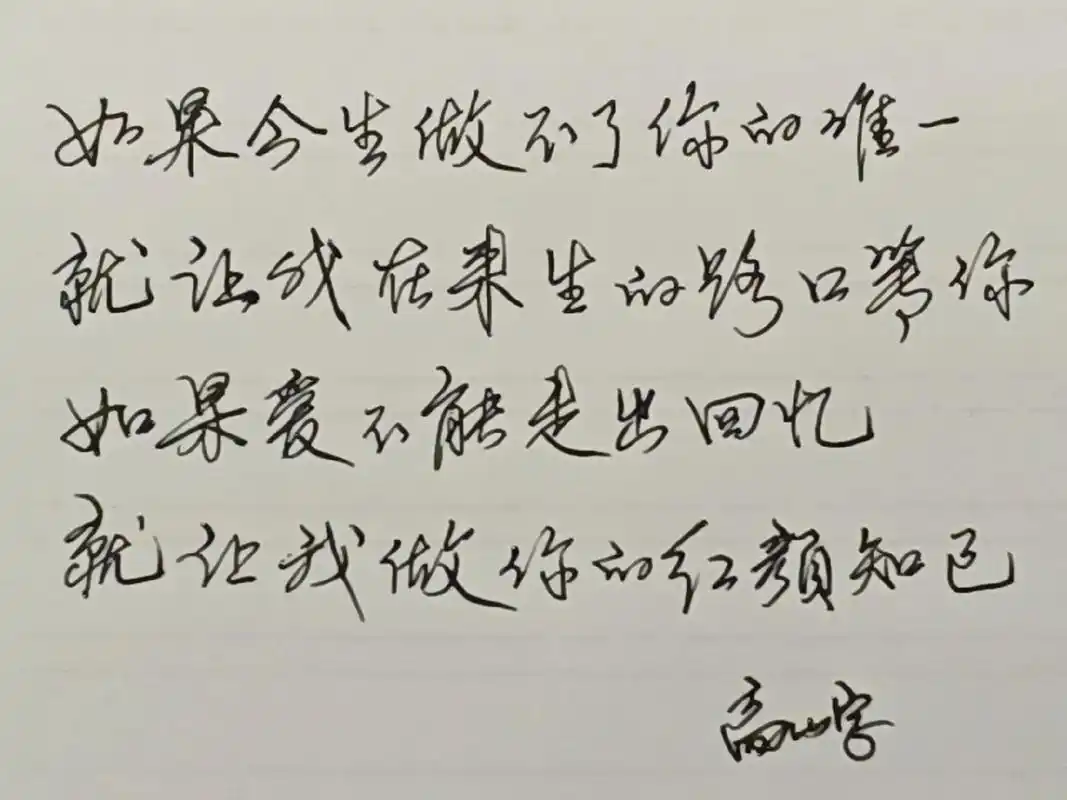 如果今生做不了你的唯一
就让我在来生的路口等你
如果爱不能走出回忆
就让我做你的红颜知己
高山字